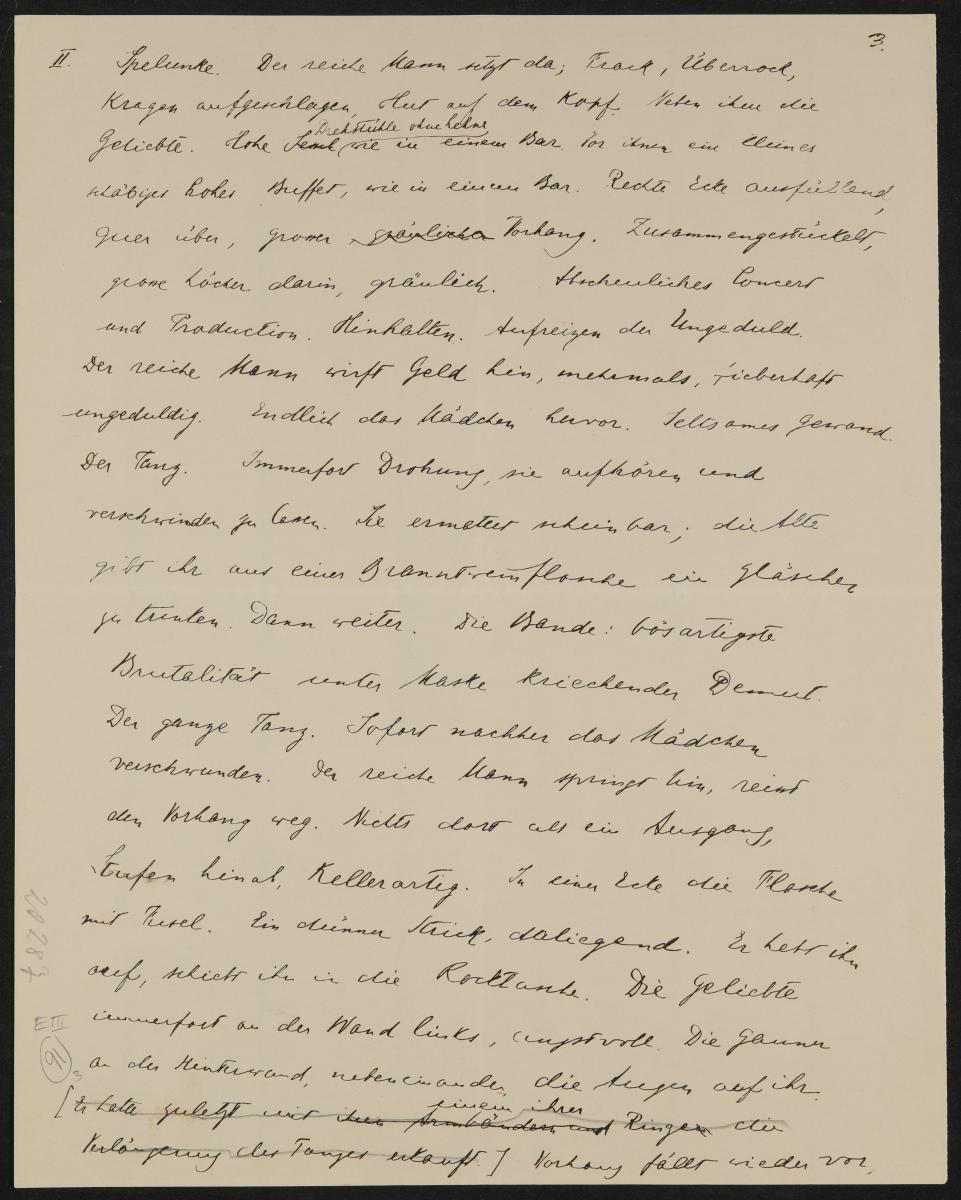 3.
II. Spelunke. Der reiche Mann sitzt da; Frack, Überrock,
Kragen aufgeschlagen, Hut auf dem Kopf. Neben ihm die
Drehstühle ohne Lehne
Geliebte. Hohe Sessel, wie in einem Bar. Vor ihnen ein kleines
schäbiges hohes Buffet, wie in einem Bar. Rechte Ecke ausfüllend,
quer über, grosser gräulicher Vorhang. Zusammengestückelt,
grosse Löcher darin, gräulich. Abscheuliches Concert
und Production. Hinhalten. Aufreizen der Ungeduld.
Der reiche Mann wirft Geld hin, mehrmals, fieberhaft
ungeduldig. Endlich das Mädchen hervor. Seltsames Gewand.
Der Tanz. Immerfort Drohung, sie aufhören und
verschwinden zu lassen. Sie ermattet scheinbar; die Alte
gibt ihr aus einer Branntweinflasche ein Gläschen
zu trinken. Dann weiter. Die Bande: bösartigste
Brutalität unter Maske kriechender Demut.
Der ganze Tanz. Sofort nachher das Mädchen
verschwunden. Der reiche Mann springt hin, reisst
den Vorhang weg. Nichts dort als ein Ausgang,
Stufen hinab, Kellerartig. In einer Ecke die Flasche
mit Fusel. Ein dünner Strick, daliegend. Er hebt ihn
auf, schiebt ihn in die Rocktasche. Die Geliebte
immerfort an der Wand links, angstvoll. Die Gauner
an der Hinterwand, nebeneinander, die Augen auf ihr.
einem ihrer
[Er hatte zuletzt mit ihren Armbändern und Ringen die
Verlängerung des Tanzes erkauft.] Vorhang fällt wieder vor,
20287
E III
91
3